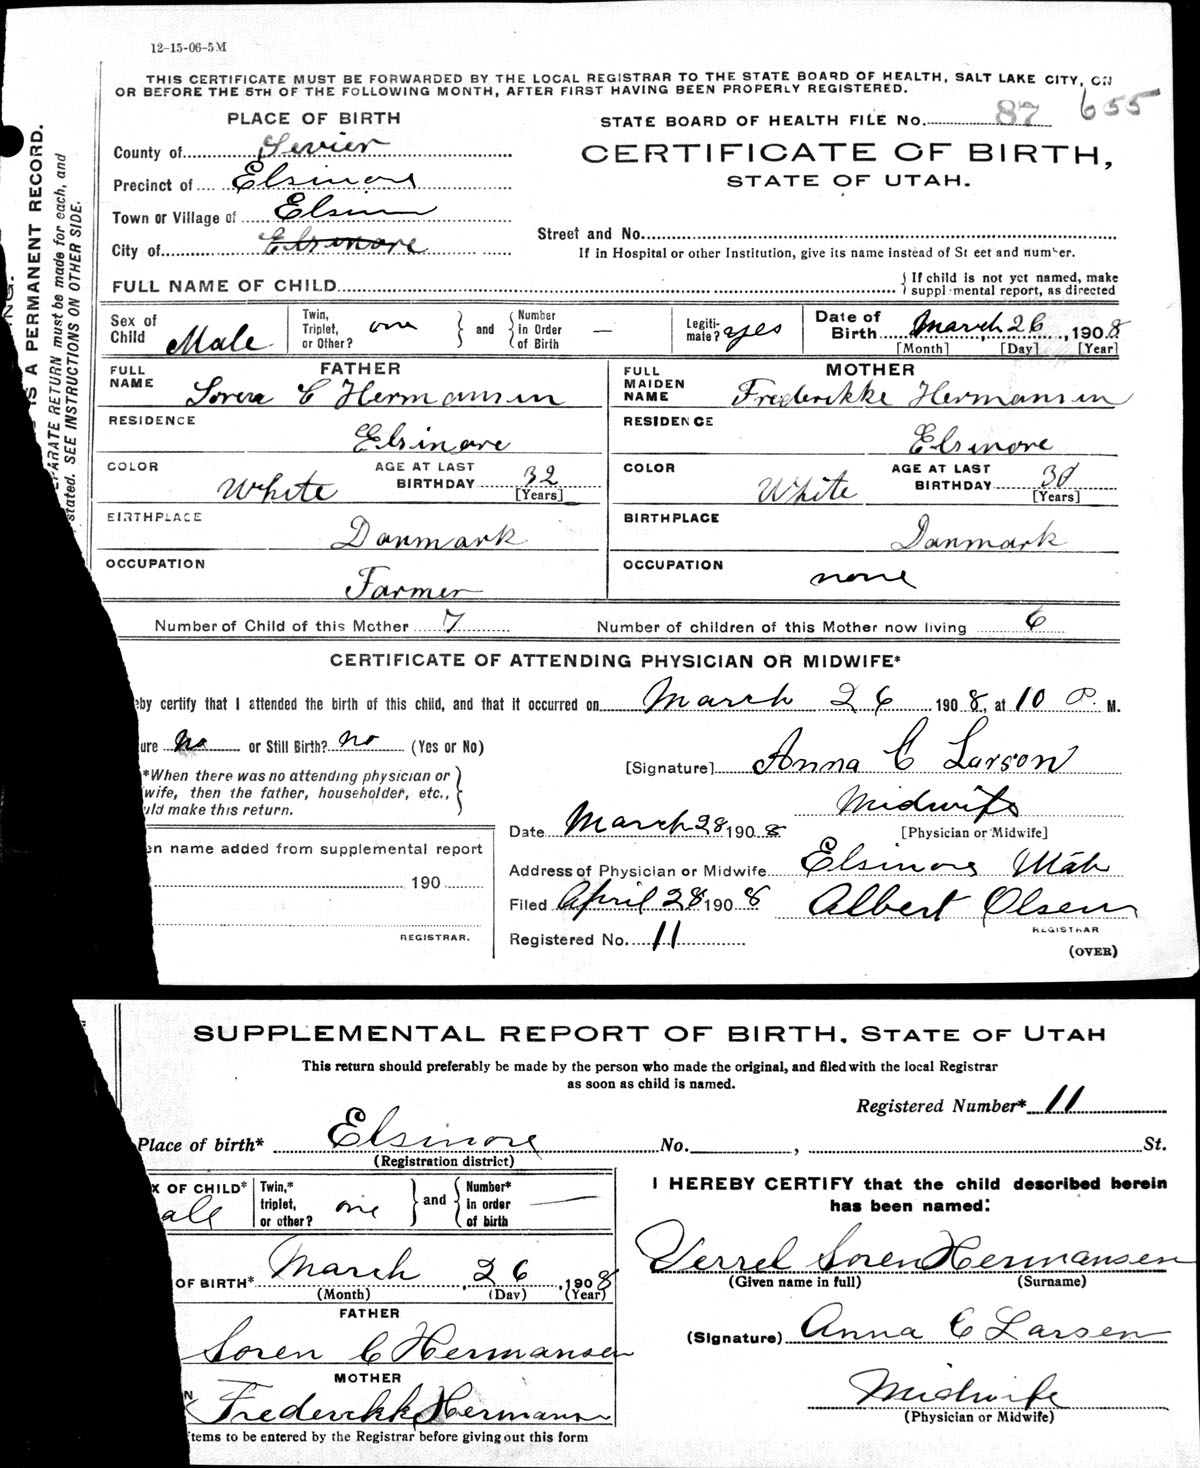 12-15-06-5M
THIS CERTIFICATE MUST BE FORWARDED BY THE LOCAL REGISTRAR TO THE STATE BOARD OF HEALTH, SALT LAKE CITY, ON
OR BEFORE THE 5TH OF THE FOLLOWING MONTH, AFTER FIRST HAVING BEEN PROPERLY REGISTERED.
IS A PERMANENT RECORD.
PARATE RETURN must be made for each, and
stated. SEE INSTRUCTIONS ON OTHER SIDE.
PLACE OF BIRTH
STATE BOARD OF HEALTH FILE No. 87 655
County of Sevier
CERTIFICATE OF BIRTH,
Precinct of Elsinore
STATE OF UTAH.
Town or Village of Elsin
Street and No.
City of Elsinore
If in Hospital or other Institution, give its name instead of St eet and number.
FULL NAME OF CHILD
If child is not yet named, make
suppl mental report, as directed
Sex of Child Male Twin, Triplet, or Other? one and Number in Order of Birth — Legiti-mate? yes Date of Birth March 26, 1908
[Month] [Day] [Year]
FATHER MOTHER
FULL NAME Soren C Hermansen FULL MAIDEN NAME Frederikke Hermansen
RESIDENCE Elsinore RESIDENCE Elsinore
COLOR White AGE AT LAST BIRTHDAY 32 [Years] COLOR White AGE AT LAST BIRTHDAY [Years]
BIRTHPLACE Danmark BIRTHPLACE Danmark
OCCUPATION Farmer OCCUPATION none
Number of Child of this Mother 7 Number of children of this Mother now living 6
CERTIFICATE OF ATTENDING PHYSICIAN OR MIDWIFE*
eby certify that I attended the birth of this child, and that it occurred on March 26 1908, at 10 P. M.
ure no or Still Birth? no (Yes or No)
[Signature] Anna C Larson
*When there was no attending physician or
wife, then the father, householder, etc.,
uld make this return.
Midwife
[Physician or Midwife]
Date March 28 1908
en name added from supplemental report
190
REGISTRAR.
Address of Physician or Midwife Elsinore Utah
Filed April 28 1908 Albert Olsen
REGISTRAR
Registered No. 11
(OVER)
SUPPLEMENTAL REPORT OF BIRTH, STATE OF UTAH
This return should preferably be made by the person who made the original, and filed with the local Registrar
as soon as child is named.
Registered Number* 11
Place of birth* Elsinore No. , St.
(Registration district)
X OF CHILD* ale Twin,* triplet, or other? one and Number* in order of birth —
I HEREBY CERTIFY that the child described herein
has been named:
OF BIRTH* March 26, 1908
(Month) (Day) (Year)
Verrel Soren Hermansen
(Given name in full) (Surname)
FATHER
Soren C Hermansen
(Signature) Anna C Larsen
MOTHER
N Frederikke Hermansen
Midwife
(Physician or Midwife)
tems to be entered by the Registrar before giving out this form